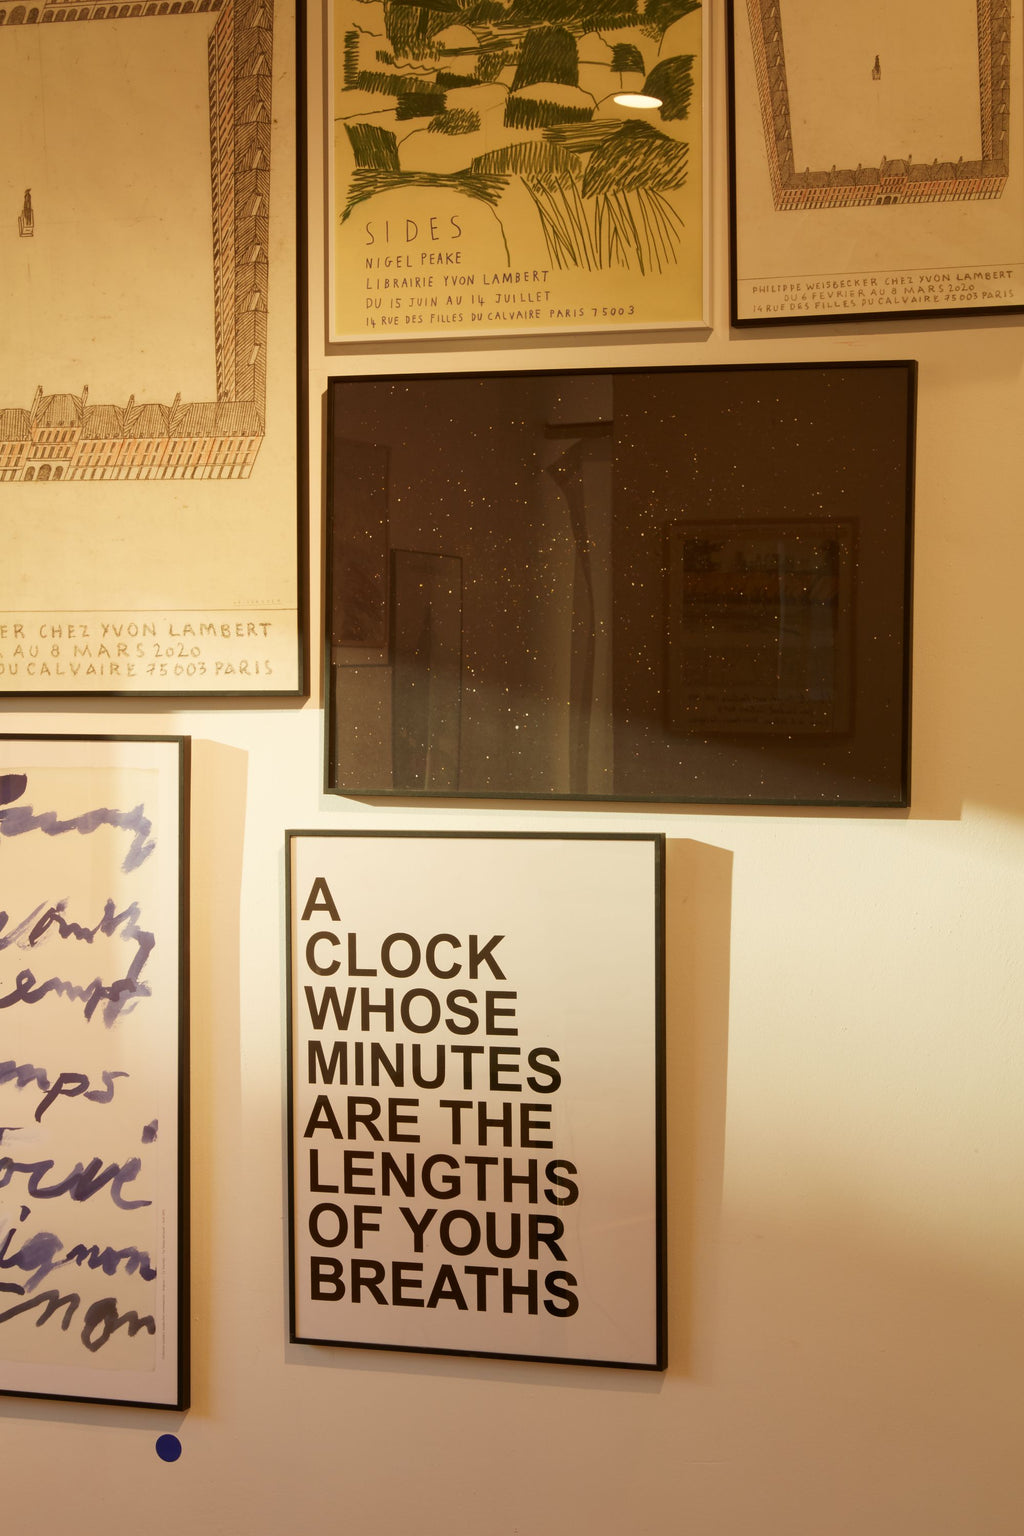 SIDES
NIGEL PEAKE
LIBRAIRIE YVON LAMBERT
DU 15 JUIN AU 14 JUILLET
14 RUE DES FILLES DU CALVAIRE PARIS 75003
PHILIPPE WEISBECKER CHEZ YVON LAMBERT
DU 6 FEVRIER AU 8 MARS 2020
14 RUE DES FILLES DU CALVAIRE 75003 PARIS
ER CHEZ YVON LAMBERT
AU 8 MARS 2020
DU CALVAIRE 75003 PARIS
A
CLOCK
WHOSE
MINUTES
ARE THE
LENGTHS
OF YOUR
BREATHS
emps
mps
ignon
non